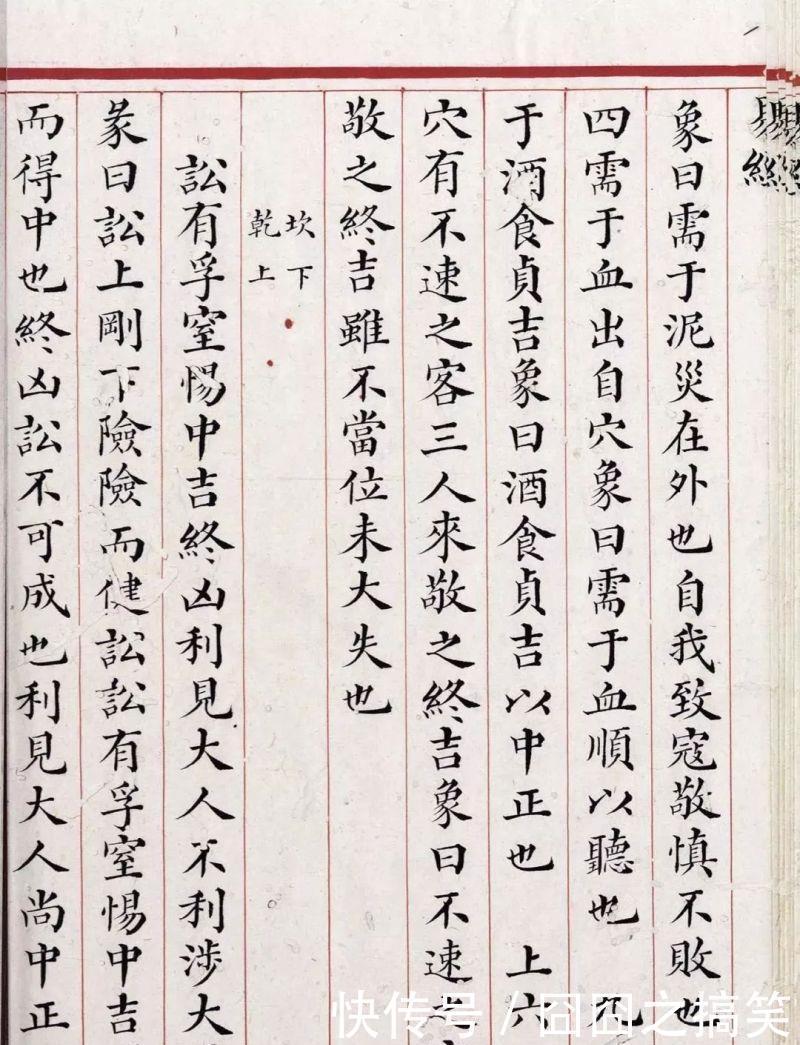 易經
象曰需于泥災在外也自我致寇敬慎不敗也
四需于血出自穴象曰需于血順以聽也 九
于酒食貞吉象曰酒食貞吉以中正也 上六
穴有不速之客三人來敬之終吉象曰不速之
敬之終吉雖不當位未大失也
坎下
乾上
訟有孚窒惕中吉終凶利見大人不利涉大
彖曰訟上剛下險險而健訟訟有孚窒惕中吉
而得中也終凶訟不可成也利見大人尚中正
快传号 / 囧囧之搞笑